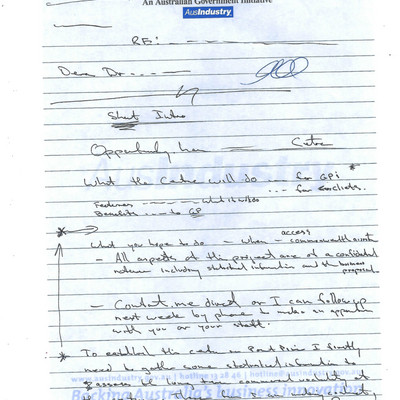 An Australian Government Initiative
AusIndustry
RE:
Dear Dr
Short Intro
Opportunity has Centre
What the Centre will do --- for GPs *
--- for
Features ----- what it
Benefits --- to GP
access
What you hope to do - When - commonwealth
- All aspects of this project are of a confidential
nature including statistical information and the business
proposal
- Contact me direct or I can follow up
next week by phone to make an appointment
with you or your staff.
* To establish this centre in Port Pirie I firstly
need to gather some statistical information to
www.ausindustry.gov.au | hotline 13 28 46 | hotline@ausindustry.gov.au
assess the long term commercial viability of
Backing Australia's business innovation